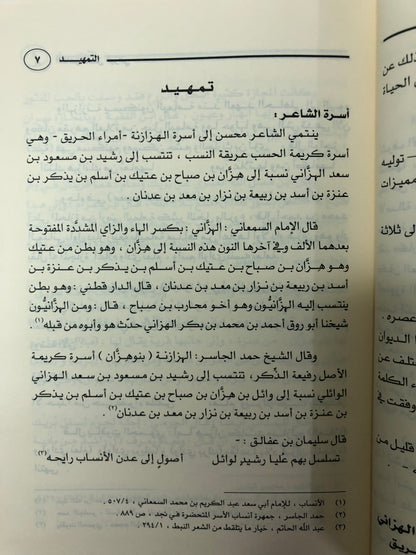 التمهيـــد
٧
تمهيـد
أسرة الشاعر :
ينتمي الشاعر محسن إلى أسرة الهزازنة -أمراء الحريق- وهي
أسرة كريمة الحسب عريقة النسب ، تنتسب إلى رشيد بن مسعود بن
سعد الهزّاني نسبة إلى هزّان بن صباح بن عتيك بن أسلم بن يذكر بن
عنزة بن أسد بن ربيعة بن نزار بن معد بن عدنان .
قال الإمام السمعاني : الهِزَّاني : بكسر الهاء والزاي المشدَّدة المفتوحة
بعدهما الألف وفي آخرها النون هذه النسبة إلى هِزَّان ، وهو بطن من عتيك
وهو هِـزَّان بـن صبـاح بن عتيـك بن أسلـم بن يـذكـر بن عنـزة بن
أسد بن ربيعة بن نزار بن معد بن عدنان ، قال الدار قطني : وهو بطن
ينتسب إليـه الهزَّانيُّون وهو أخو محارب بن صباح ، قال : ومن الهزَّانيُّون
شيخنا أبو روق أحمد بن محمد بن بكر الهزاني حدَّث هو وأبوه من قبله(١) .
وقال الشيخ حمد الجاسر: الهزازنة ( بنوهِزَّان ) أسرة كريمة
الأصل رفيعة الذِّكر، تنتسب إلى رشيد بن مسعود بن سعد الهزاني
الوائلي نسبة إلى وائل بن هِزَّان بن صباح بن عتيك بن أسلم بن يذكر
بن عنزة بن أسد بن ربيعة بن نزار بن معد بن عدنان(٢) .
قال سليمان بن عفالق : -
تسلسل بهم عُليا رشيدٍ لوائل أصولٍ إلى عدن الأنساب رايحه(٣)
(١) الأنساب ، للإمام أبي سعد عبد الكريم بن محمد السمعاني ، ٥٠٧/٤ .
(٢) حمد الجاسر، جمهرة أنساب الأسر المتحضرة في نجد ، ص ٨٨٩ .
(٣) عبد الله الحاتم ، خيار ما يلتقط من الشعر النبط ، ٢٩٤/١ .
ذلك عن
الحياة
توليه
مميزات
ثلاثة
عصره .
الديوان
تلف عن
الكلمة
وفقت في
قليل من
الهزاني